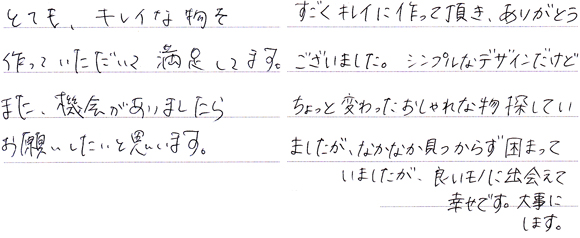 とても、キレイな物を
作っていただいて満足してます。
また、機会がありましたら
お願いしたいと思います。
すごくキレイに作って頂き、ありがとう
ございました。シンプルなデザインだけど
ちょっと変わったおしゃれな物探してい
ましたが、なかなか見つからず困まって
いましたが、良いモノに出会えて
幸せです。大事に
します。